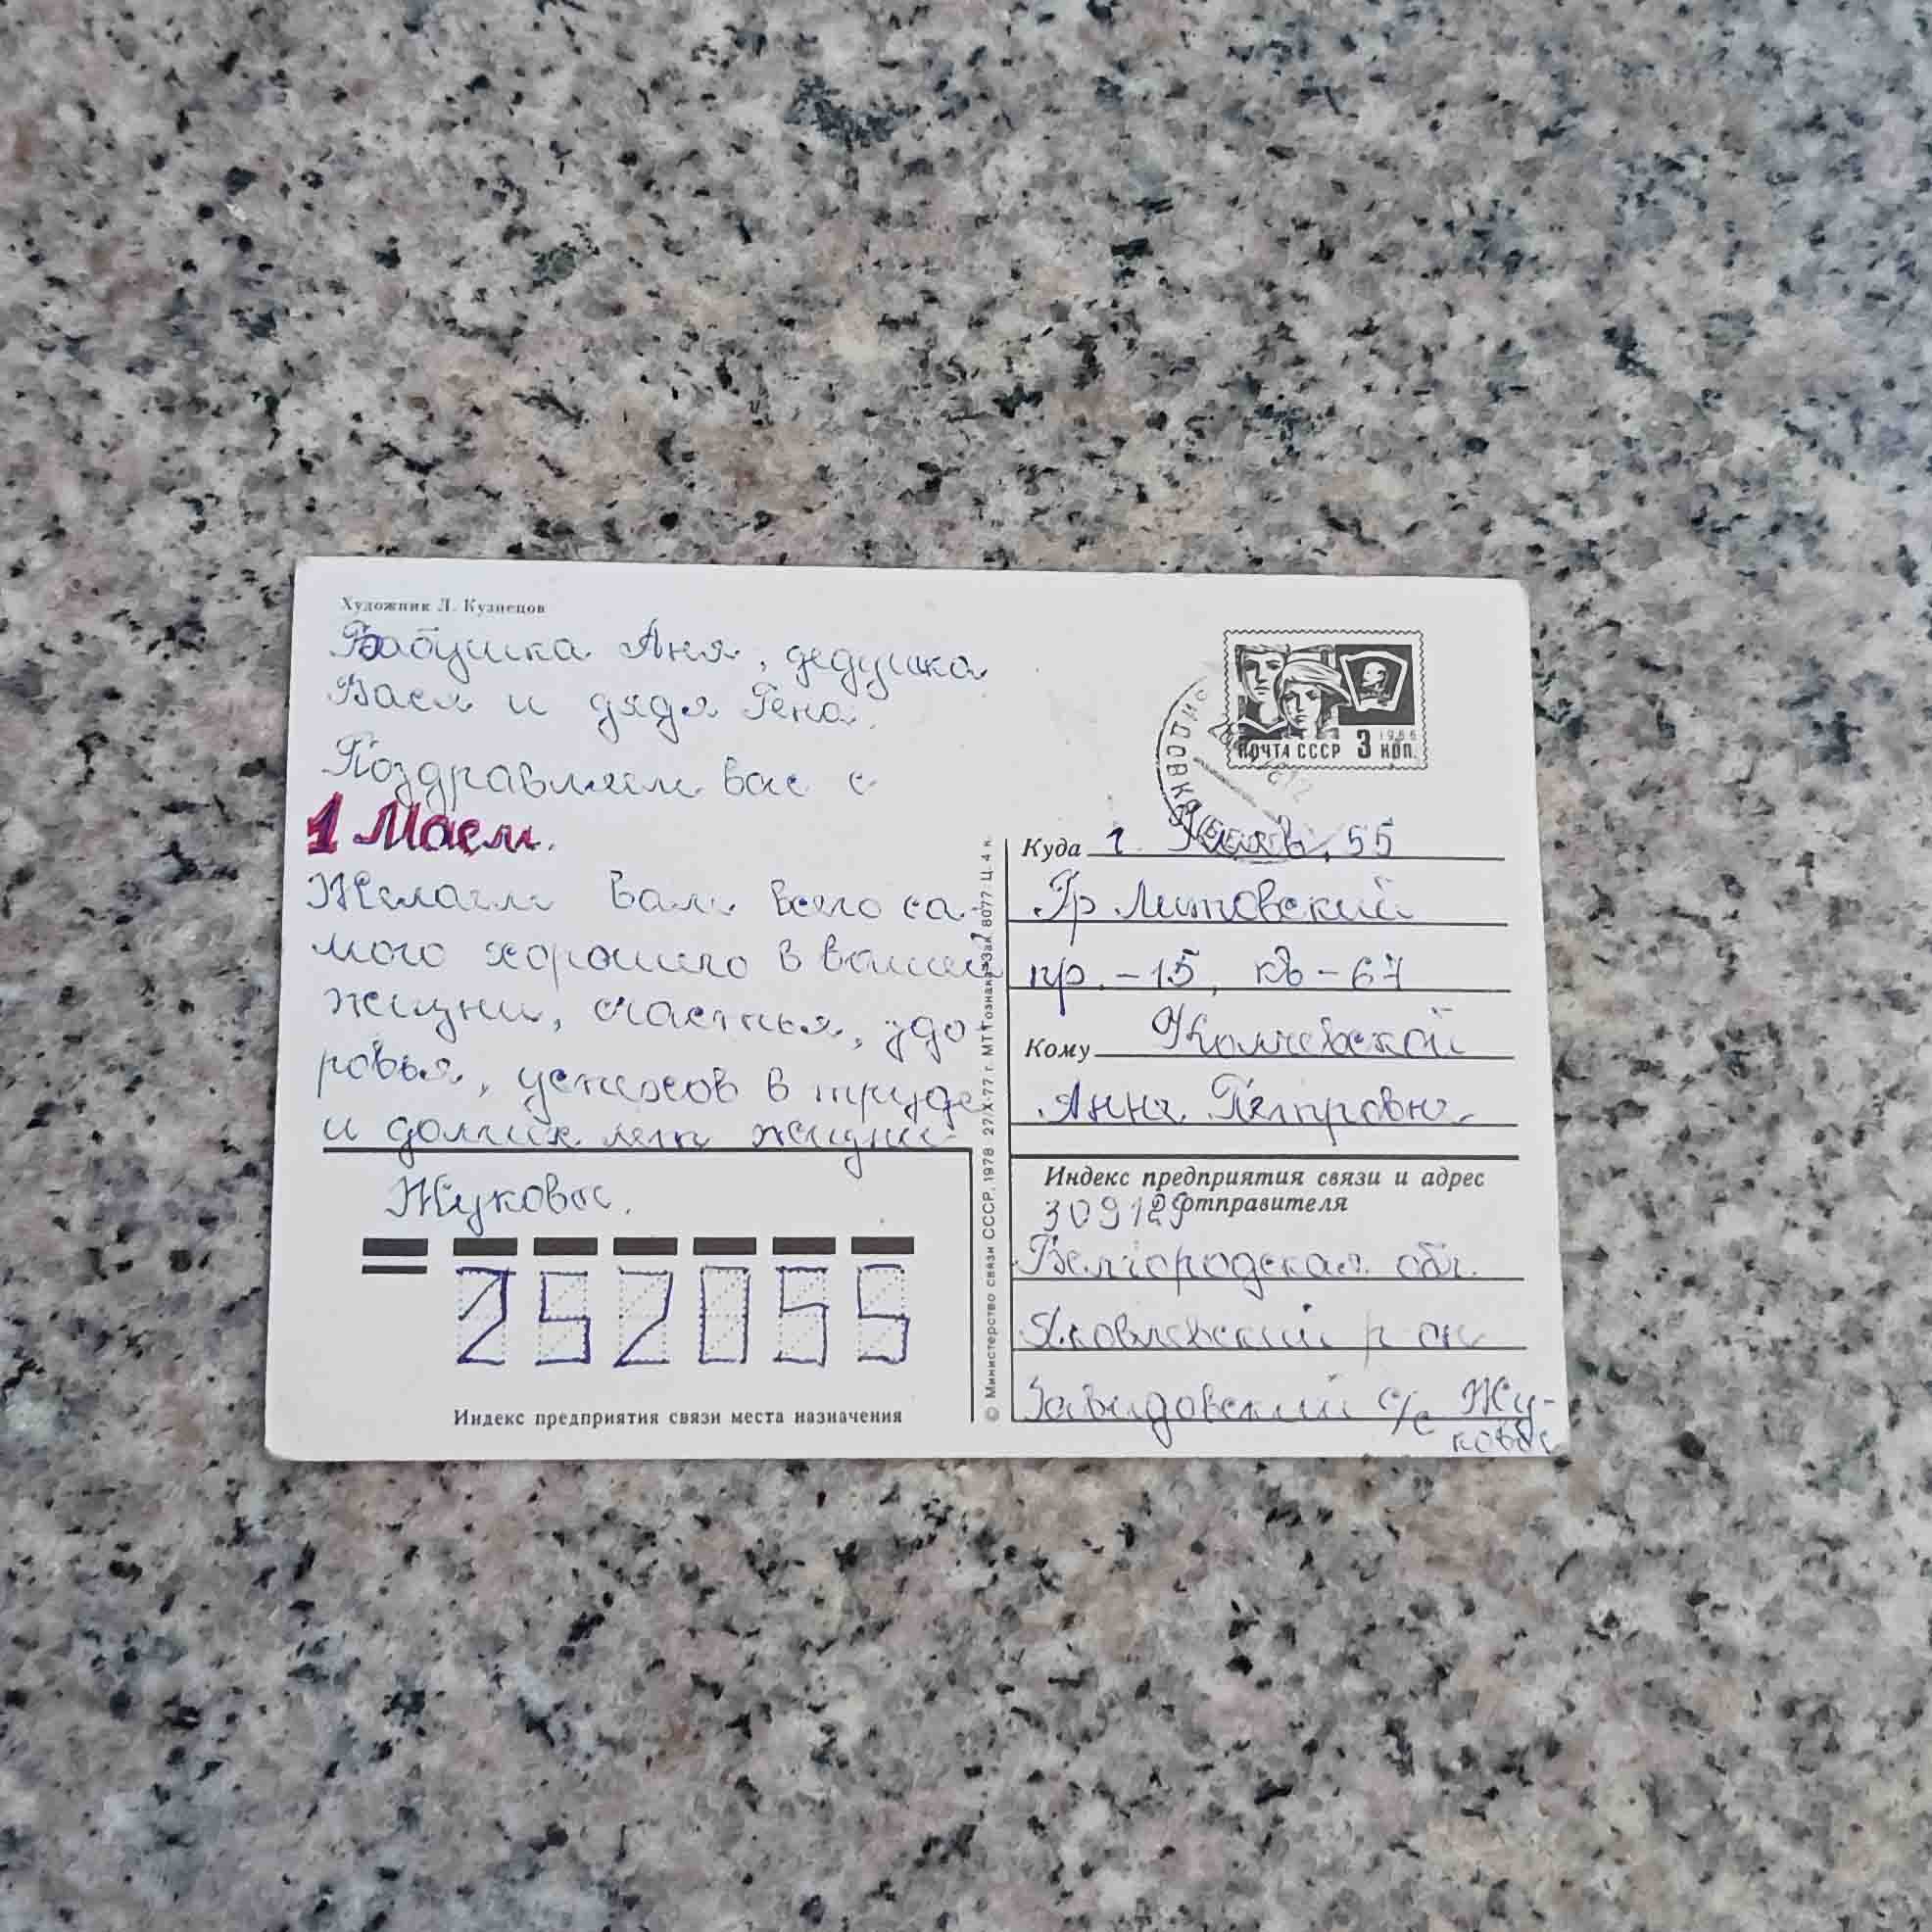 Художник Л. Кузнецов
Бабушка Аня, дедушка
Вася и дядя Гена.
Поздравляем вас с
1 Маем.
Желаем Вам всего са-
мого хорошего в вашей
жизни, счастья, здо-
ровья, успехов в труде
и долгих лет жизни.
Жуковы.
252055
Индекс предприятия связи места назначения
© Министерство связи СССР, 1978 27/X-77 г. МТ Гознака Зак. 8077. Ц. 4 к.
ПОЧТА СССР 3 КОП.
1966
Куда г. Киев, 55
Пр Литовский
пр. -15, кв - 67
Кому
Анне Петровне
Индекс предприятия связи и адрес
отправителя
309129
Белгородская обл.
Яковлевский р-он
Завидовский с/с Жу-
ковы